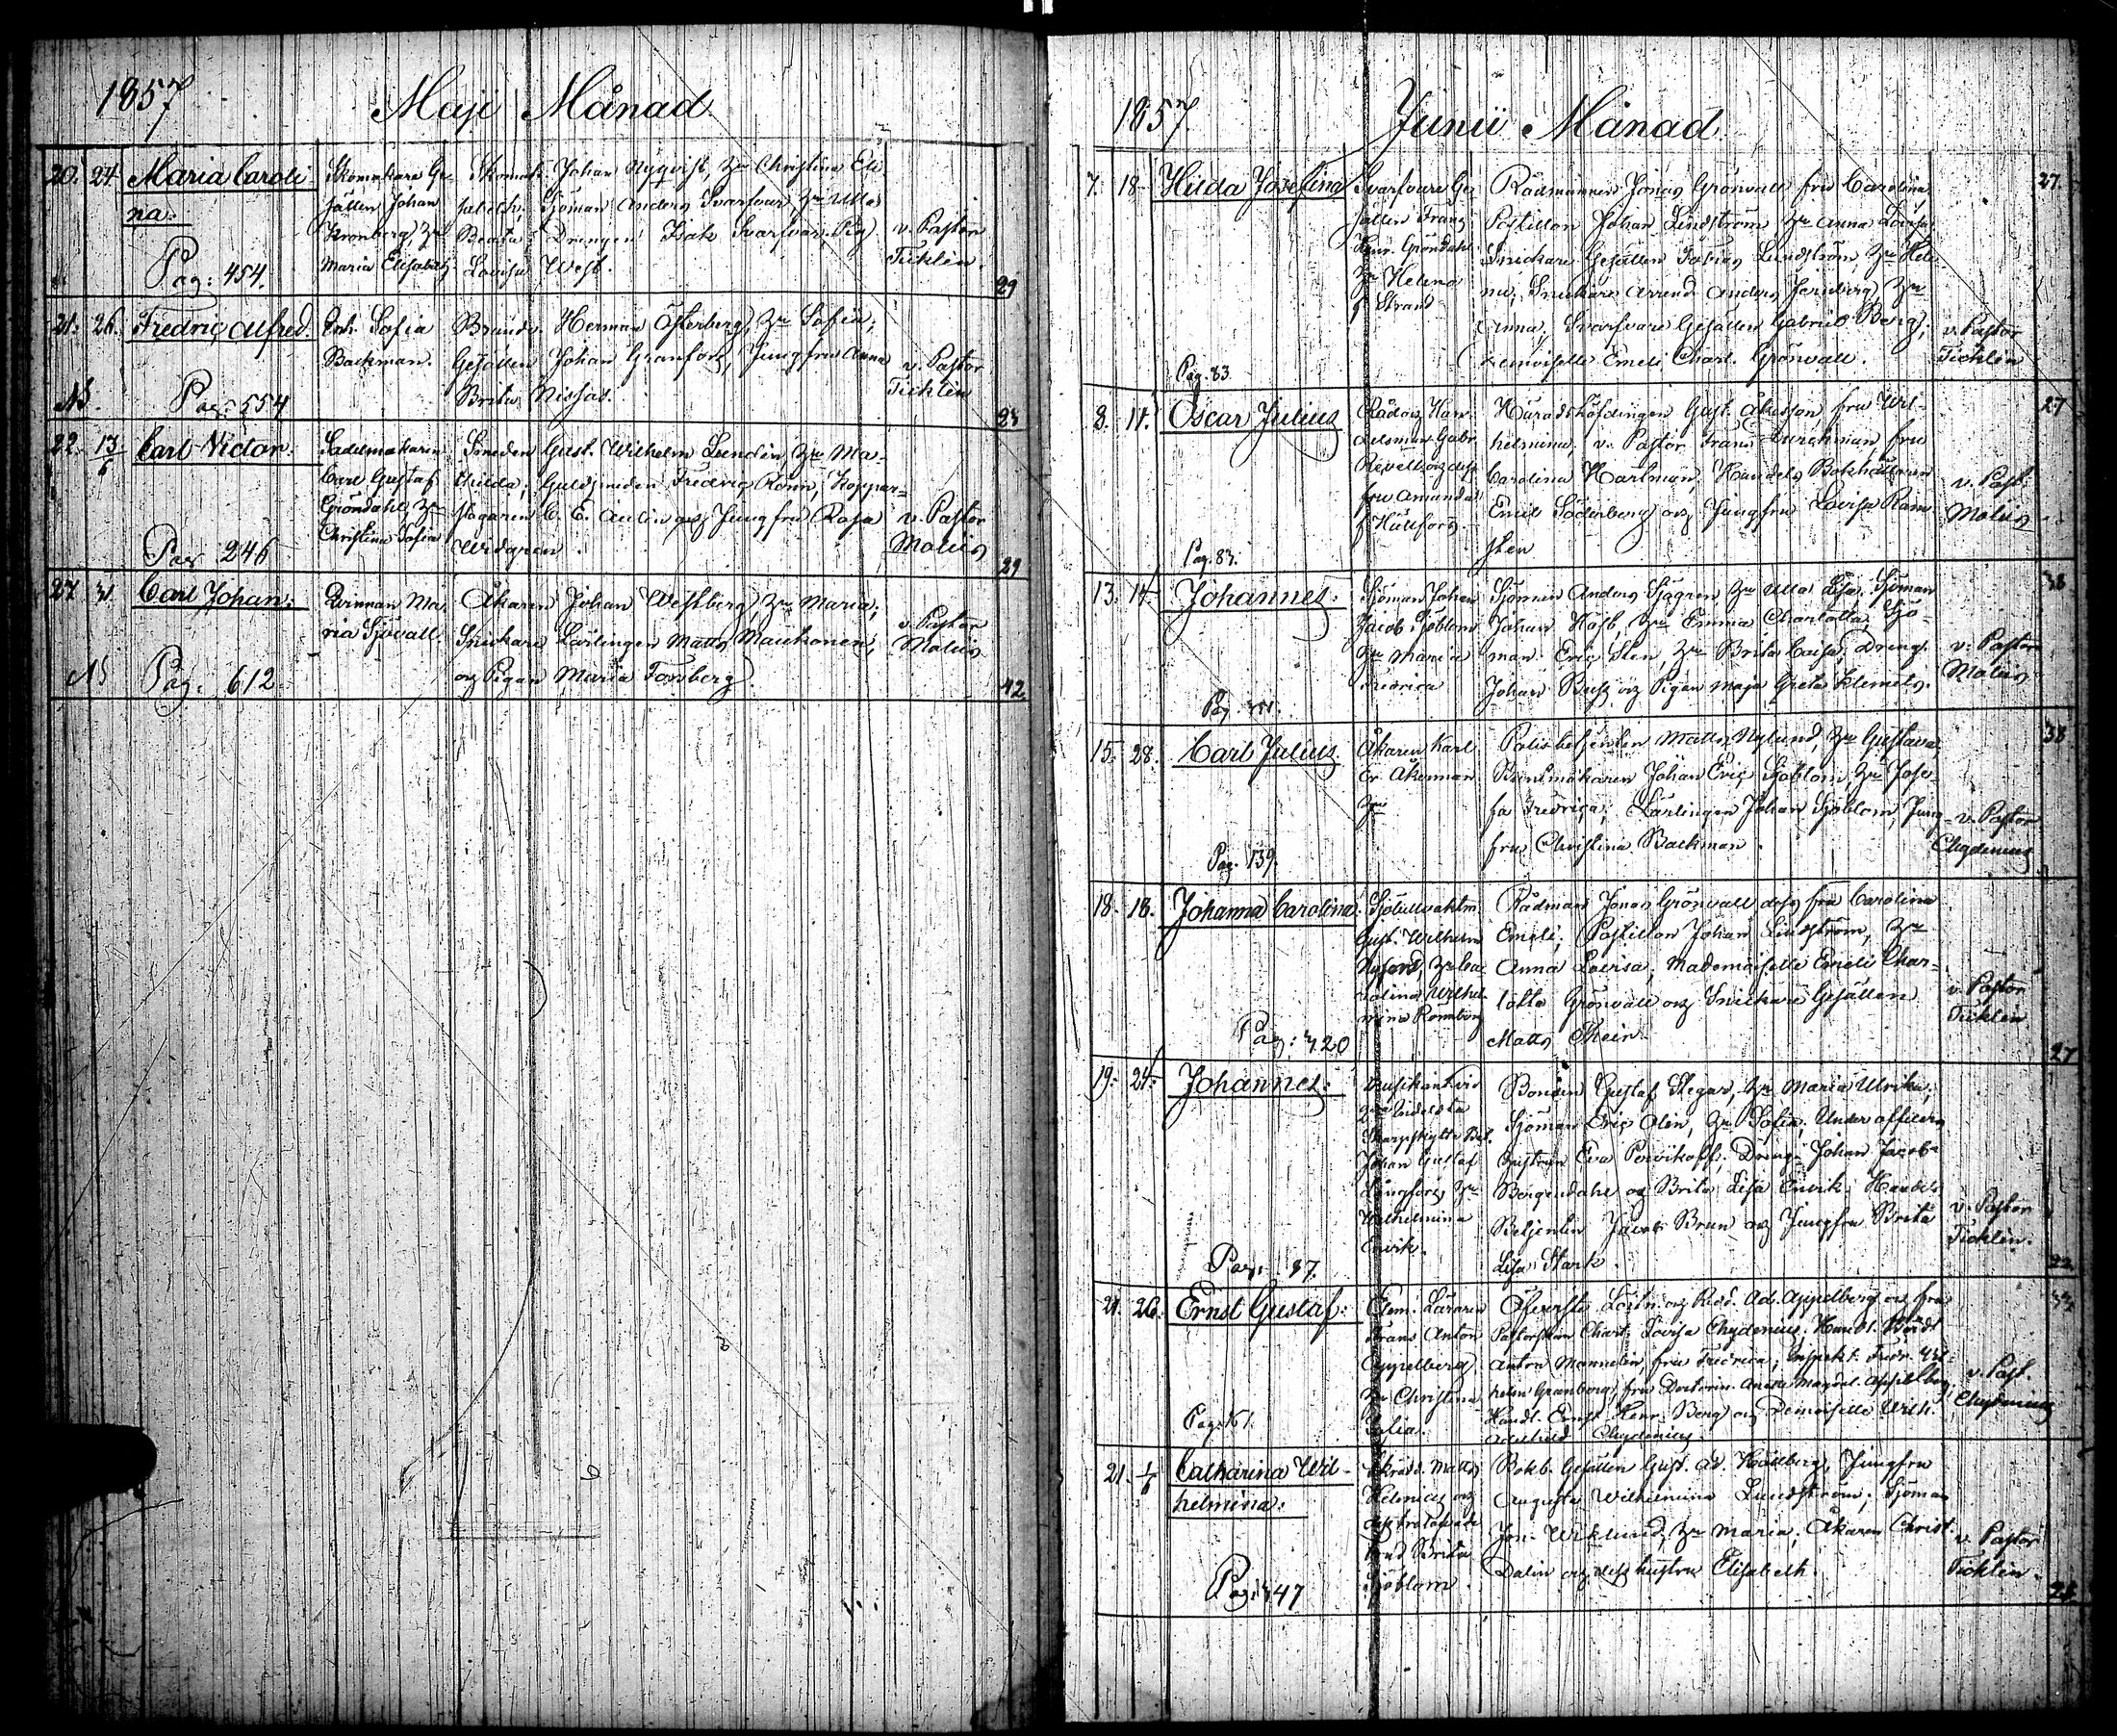 1857
Maji Månad
20. 24 Maria Caroli-
na:
Pag: 454.
Skomakare Ge-
sällen Johan
Kronberg, Hu
Maria Elisabeth
Skomak. Johan Nyqvist, Hu Christina Eli
sabeth; Sjöman Anders Svarfvar, Hu Ulla
Beata; Drengen Isak Svarfvar, Pig
Lovisa West.
v. Pastor
Ticklén.
29
21. 26. Fredric Alfred.
Pag: 554
Sofia
Backman.
Herman Österberg, Hu Sofia,
Gesällen Johan Granfors, Jungfru Anna
Brita Nissas.
v. Pastor
Ticklén
23
22. 13/6 Carl Victor.
Pag 246
Sadelmakaren
Carl Gustaf
Gröndahl, Hu
Christina Sofia
Smeden Gust. Wilhelm Lundin, Hu Ma-
thilda; Guldsmeden Fredric Rönn, Koppar-
slagaren C. E. och Jungfru Rosa
Widgren.
v. Pastor
Molius
29
27 31. Carl Johan:
Pag: 612
Qvinnan Ma
ria Sjövall
Åkaren Johan Westberg, Hu Maria;
Snickare Lärlingen Matts Maukonen,
och Pigan Maria Forsberg.
v. Pastor
Molius
42.
1857.
Junii Månad
7. 18 Hilda Josefina
Pag. 83
Svarfvare Ge
sällen Franz
Henr. Gröndahl
Hu Helena
f Strand
Rådmannen Jonas Grönvall fru Carolina,
Postillon Johan Lindström, Hu Anna Lovisa,
Snickare Gesällen Tobias Lundström, Hu Hele
na, Snickare Anders Jernberg, Hu
Anna, Svarfvare Gesällen Gabriel Berg,
Demoiselle Emeli Charl. Grönvall.
v. Pastor
Ticklén
27.
8. 11. Oscar Julius
Pag. 83.
Råd o Han
delsman Gabr.
Revell och dess
fru Amanda
f Hällfors.
Häradshöfdingen Gust. Åkesson, fru Wil-
helmina, v. Pastor Frans Durchman, fru
Carolina Karlman, Handels Bokhållaren
Emil Söderberg och Jungfru Lovisa Ram
sten
v. Past.
Molius
27
13. 14. Johannes:
Pag
Sjöman Johan
Jacob Sjöblom
Hu Maria
Fredrica
Sjöman Anders Sjögren, Hu Ulla Lisa, Sjöman
Johan Höst, Hu Emma Charlotta, Sjö-
man Eric Sten, Hu Brita Caisa, Dreng.
Johan Buss och Pigan Maja Greta Klemets.
v. Pastor
Molius
38
15. 28. Carl Julius
Pag. 139.
Åkaren Karl
Er. Åkerman
Hu
Polisbetjenten Matts Nylund, Hu Gustava,
Johan Eric Sjöblom, Hu Jose-
fa Fredrica; Lärlingen Johan Sjöblom, Jung-
fru Christina Backman.
v. Pastor
Chydenius
38
18. 18. Johanna Carolina
Pag: 420
Sjötullvaktm
Gust. Wilhelm
Nyford, Hu Ca
rolina Wilhel-
mina Rönnberg
Rådman Jonas Grönvall dess fru Carolina
Emeli; Postillon Johan Lindström, Hu
Anna Lovisa; Mademoiselle Emeli Char-
lotta Grönvall och Snickare Gesällen
Matts Thein.
v. Pastor
Ticklén
27
19. 24. Johannes:
Pag: 87.
Musikant vid
Skarpskytte Bat.
Johan Gustaf
Långfors, Hu
Wilhelmina
Envik.
Bonden Gustaf Stegar, Hu Maria Ulrika,
Sjöman Eric Olin, Hu Sofia; Under officers
hustrun Eva Poivikoff, Dreng Johan Jacob
Bergendahl och Brita Lisa Envik, Handels
Betjenten Jacob Brun och Jungfru Brita
Lisa Stark.
v. Pastor
Ticklén.
22
21. 26. Ernst Gustaf:
Pag: 161
Elem. Läraren
Frans Anton
Appelberg
Hu Christina
Julia.
Öfverste Löjtn. och Ridd. Ad. Appelberg och fru
Pastorskan Charl. Lovisa Chydenius, Handl.
Anton Mannelin, fru Fredrica; Inspekt. Fredr. Wil-
helm Granberg, fru Doctorin. Anna Magdal. Appelberg,
Handl. Ernst Henr. Berg och Demoiselle Wilh.
Adelheid Chydenius.
v. Past.
Chydenius
32
21. 1/6 Catharina Wil-
helmina:
Pag: 447
Skrädd. Matts
Helenius och
Brita
Sjöblom.
Bokb. Gesällen Gust. Ad. Hällberg, Jungfru
Augusta Wilhelmina Lundström; Sjöman
Jon. Wiklund, Hu Maria; Åkaren Christ.
Dalin och dess hustru Elisabeth.
v. Pastor
Ticklén.
28